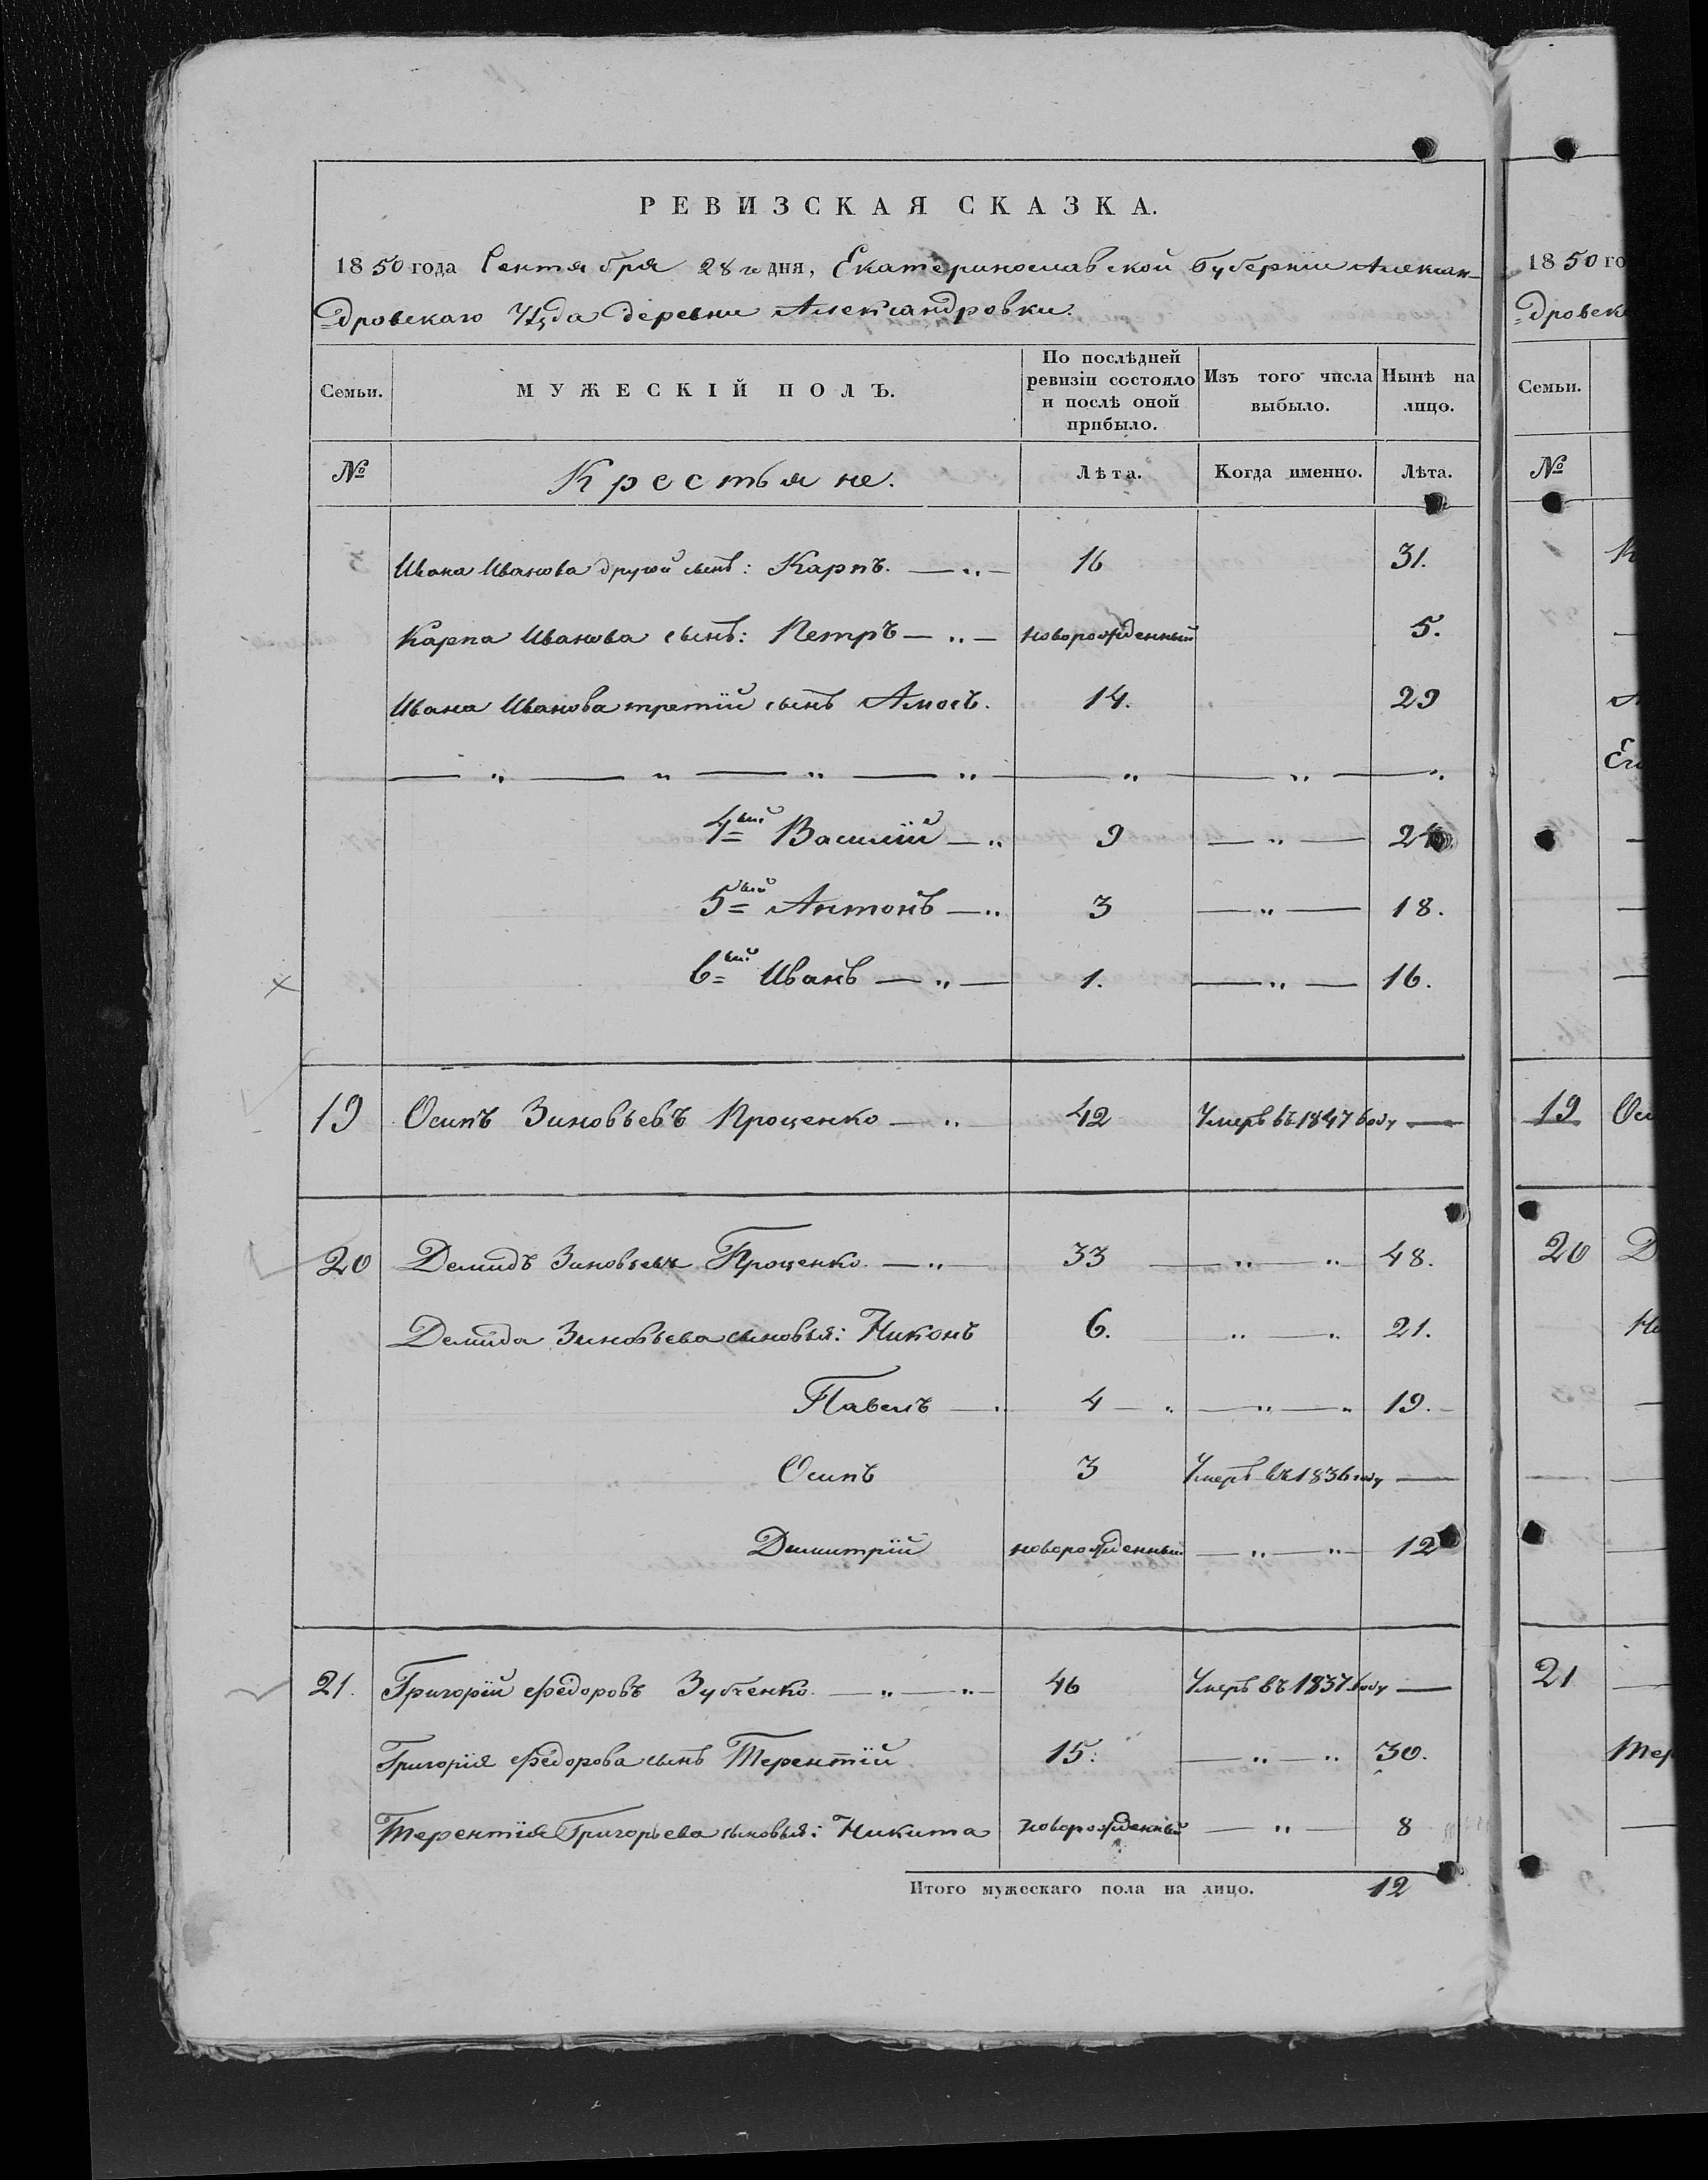 РЕВИЗСКАЯ СКАЗКА.
1850 года Сентября 28го дня, Екатеринославской Губернии Алексан-
=дровскаго Уѣзда деревни Александровки.
Семьи. МУЖЕСКІЙ ПОЛЪ. По послѣдней ревизіи состояло и послѣ оной прибыло. Изъ того числа выбыло. Нынѣ на лицо.
№ Крестьяне. Лѣта. Когда именно. Лѣта.
Ивана Иванова другой сынъ: Карпъ. — „ — 16 31.
Карпа Иванова сынъ: Петръ — „ — новорожденный 5.
Ивана Иванова третій сынъ Амосъ. 14. 29
— „ — „ — „ — „ — „ — „ — „
4=ый Василій — „ 9 — „ — 24
5=ый Антонъ — „ 3 — „ — 18.
6=ый Иванъ — „ — 1. — „ — 16.
19 Осипъ Зиновьевъ Проценко — „ 42 Умеръ въ 1847 году —
20 Демидъ Зиновьевъ Проценко — „ — 33 — „ — „ 48.
Демида Зиновьева сыновья: Никонъ 6. „ — „ 21.
Павелъ — „ 4 — „ — „ — „ 19.
Осипъ 3 Умеръ въ 1836 году —
Димитрій новорожденный — „ — „ 12
21. Григорій Федоровъ Зубченко — „ — „ 46 Умеръ въ 1837 году —
Григорія Федорова сынъ Терентій 15. — „ — „ 30.
Терентія Григорьева сыновья: Никита новорожденный — „ — 8
Итого мужескаго пола на лицо. 12
1850 го
=дровск
Семьи.
№
19 Ос
20 Д
21
Тер